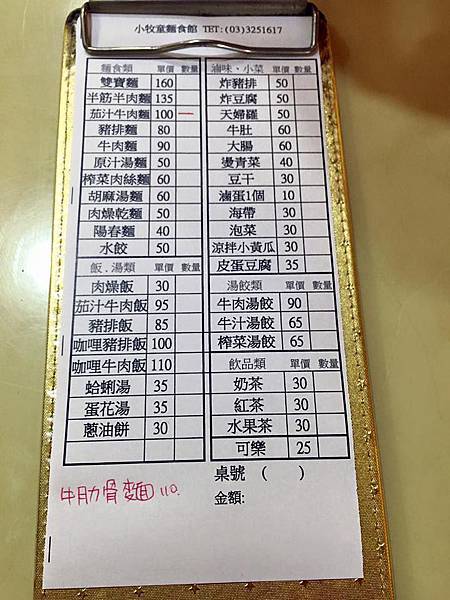 小牧童麵食館 TET:(03)3251617
麵食類 單價 數量
雙寶麵 160
半筋半肉麵 135
茄汁牛肉麵 100 一
豬排麵 80
牛肉麵 90
原汁湯麵 50
榨菜肉絲麵 60
胡麻湯麵 60
肉燥乾麵 50
陽春麵 40
水餃 50
飯.湯類 單價 數量
肉燥飯 30
茄汁牛肉飯 95
豬排飯 85
咖哩豬排飯 100
咖哩牛肉飯 110
蛤蜊湯 35
蛋花湯 35
蔥油餅 30
滷味、小菜 單價 數量
炸豬排 50
炸豆腐 50
天婦羅 50
牛肚 60
大腸 60
燙青菜 40
豆干 30
滷蛋1個 10
海帶 30
泡菜 30
涼拌小黃瓜 30
皮蛋豆腐 35
湯餃類 單價 數量
牛肉湯餃 90
牛汁湯餃 65
榨菜湯餃 65
飲品類 單價 數量
奶茶 30
紅茶 30
水果茶 30
可樂 25
桌號 ( )
金額:
牛肋骨麵 110.